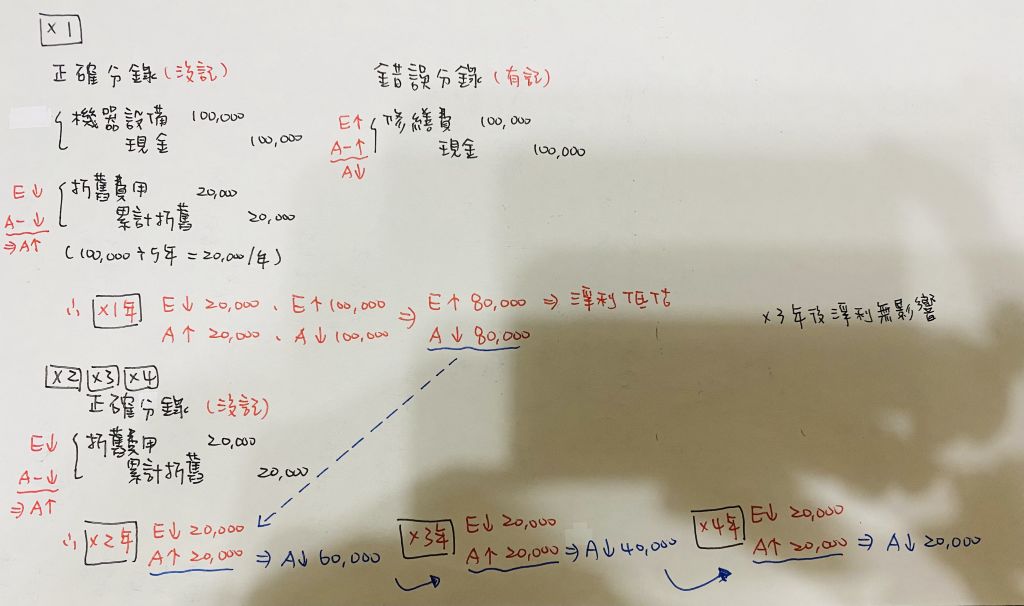 X1
正確分錄(沒記) 錯誤分錄(有記)
機器設備 100,000 E↑ 修繕費 100,000
現金 100,000 A-↑ 現金 100,000
A↓
E↓ 折舊費用 20,000
A-↓ 累計折舊 20,000
⇒A↑ (100,000÷5年=20,000/年)
∴ X1年 E↓ 20,000、E↑100,000 ⇒ E↑ 80,000 ⇒ 淨利低估
A↑ 20,000、A↓100,000 A↓ 80,000
X3年後淨利無影響
X2 X3 X4
正確分錄 (沒記)
E↓ 折舊費用 20,000
A-↓ 累計折舊 20,000
⇒A↑
∴ X2年 E↓ 20,000 X3年 E↓ 20,000 X4年 E↓ 20,000
A↑ 20,000 ⇒ A↓ 60,000 A↑ 20,000 ⇒ A↓ 40,000 A↑ 20,000 ⇒ A↓ 20,000